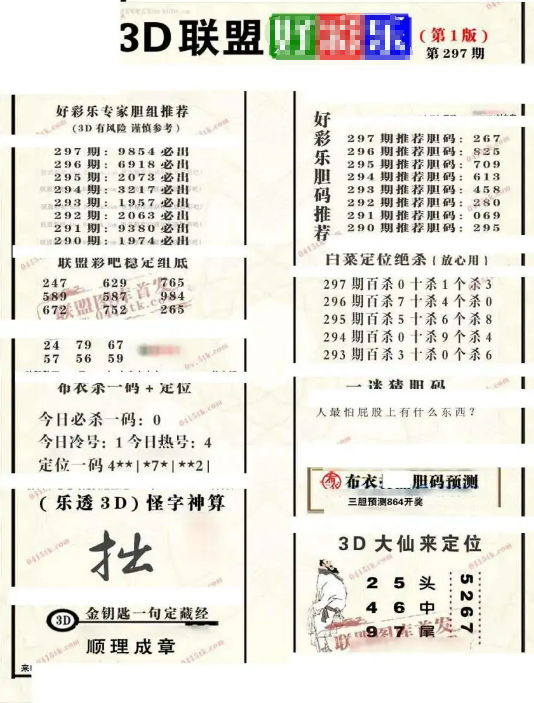 3D联盟好彩乐
(第1版)
第297期
好彩乐专家胆组推荐
(3D有风险 谨慎参考)
297期: 9854必出
296期: 6918必出
295期: 2073必出
294期: 3217必出
293期: 1957必出
292期: 2063必出
291期: 9380必出
290期: 1974必出
联盟彩吧稳定组底
247 629 765
589 587 984
672 752 265
联盟图库首发
24 79 67
57 56 59
布衣杀一码+定位
今日必杀一码: 0
今日冷号: 1 今日热号: 4
定位一码 4**|*7*|**2|
(乐透3D)怪字神算
拙
3D 金钥匙一句定藏经
顺理成章
好彩乐胆码推荐
297期推荐胆码: 267
296期推荐胆码: 825
295期推荐胆码: 709
294期推荐胆码: 613
293期推荐胆码: 458
292期推荐胆码: 280
291期推荐胆码: 069
290期推荐胆码: 295
白菜定位绝杀(放心用)
297期百杀0十杀1个杀3
296期百杀7十杀4个杀0
295期百杀5十杀6个杀8
294期百杀0十杀9个杀4
293期百杀3十杀0个杀6
一迷猜胆码
人最怕屁股上有什么东西?
布衣 胆码预测
三胆预测864开奖
3D大仙来定位
2 5 头
4 6 中
9 7 尾
5267
联盟图库首发
0415tk.com